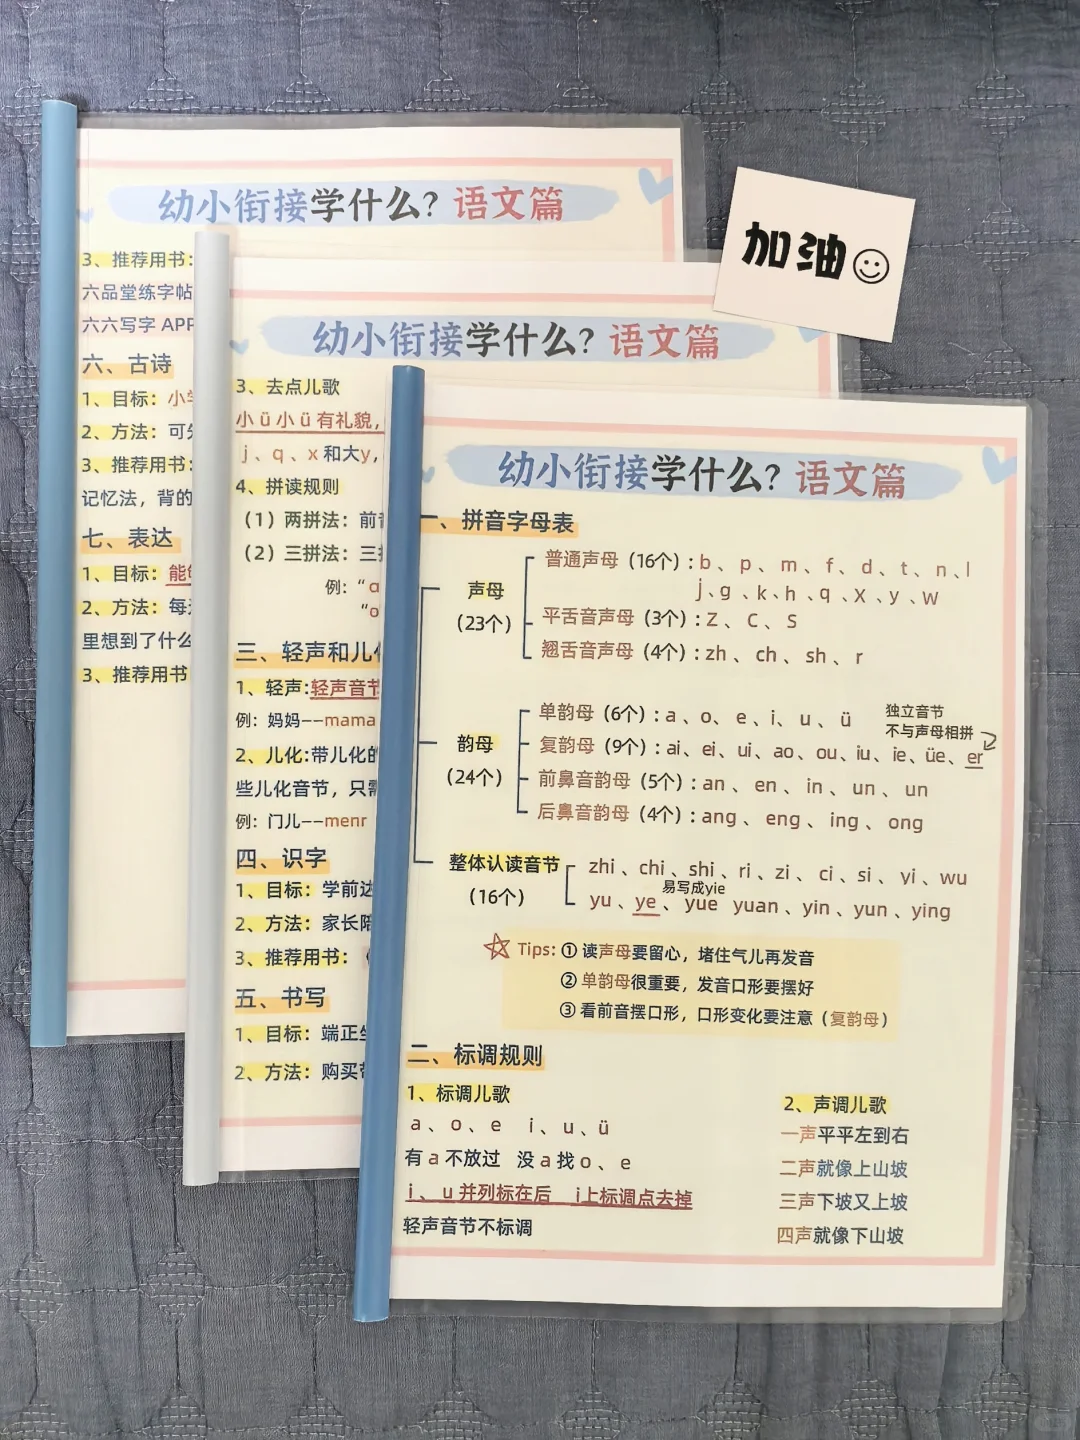 幼小衔接学什么？语文篇
3、推荐用书：
六品堂练字帖
六六写字 APP
六、古诗
1、目标：小
2、方法：可
3、推荐用书：
记忆法，背的
七、表达
1、目标：能
2、方法：每
里想到了什么
3、推荐用书
加油☺
幼小衔接学什么？语文篇
3、去点儿歌
小ü小ü有礼貌，
j、q、x和大y，
4、拼读规则
（1）两拼法：前
（2）三拼法：三
例：“
“
三、轻声和儿
1、轻声:轻声音节
例：妈妈——mama
2、儿化:带儿化的
些儿化音节，只需
例：门儿——menr
四、识字
1、目标：学前
2、方法：家长
3、推荐用书：
五、书写
1、目标：端正
2、方法：购买
幼小衔接学什么？语文篇
一、拼音字母表
声母
（23个）
普通声母（16个）：b、p、m、f、d、t、n、l
j、g、k、h、q、x、y、w
平舌音声母（3个）：z、c、s
翘舌音声母（4个）：zh、ch、sh、r
韵母
（24个）
单韵母（6个）：a、o、e、i、u、ü
独立音节
不与声母相拼
复韵母（9个）：ai、ei、ui、ao、ou、iu、ie、üe、er
前鼻音韵母（5个）：an、en、in、un、un
后鼻音韵母（4个）：ang、eng、ing、ong
整体认读音节
（16个）
zhi、chi、shi、ri、zi、ci、si、yi、wu
易写成yie
yu、ye、yue yuan、yin、yun、ying
Tips: ① 读声母要留心，堵住气儿再发音
② 单韵母很重要，发音口形要摆好
③ 看前音摆口形，口形变化要注意（复韵母）
二、标调规则
1、标调儿歌
a、o、e i、u、ü
有a不放过 没a找o、e
i、u并列标在后 i上标调点去掉
轻声音节不标调
2、声调儿歌
一声平平左到右
二声就像上山坡
三声下坡又上坡
四声就像下山坡